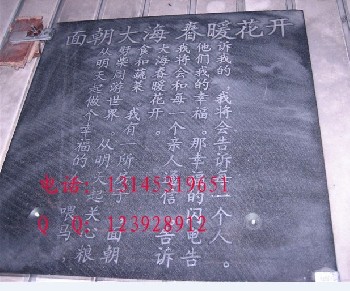 面朝大海春暖花开
从明天起做个幸福的 喂马，
柴周游世界。从明 起关心粮
食和蔬菜，我有一所 子 面朝
大海春暖花开。
我将会和每一个亲人 信 告诉
他们我的幸福。那幸福的闪电告
诉我的，我将会告诉 一个人。
电话：13145319651
Q Q：123928912